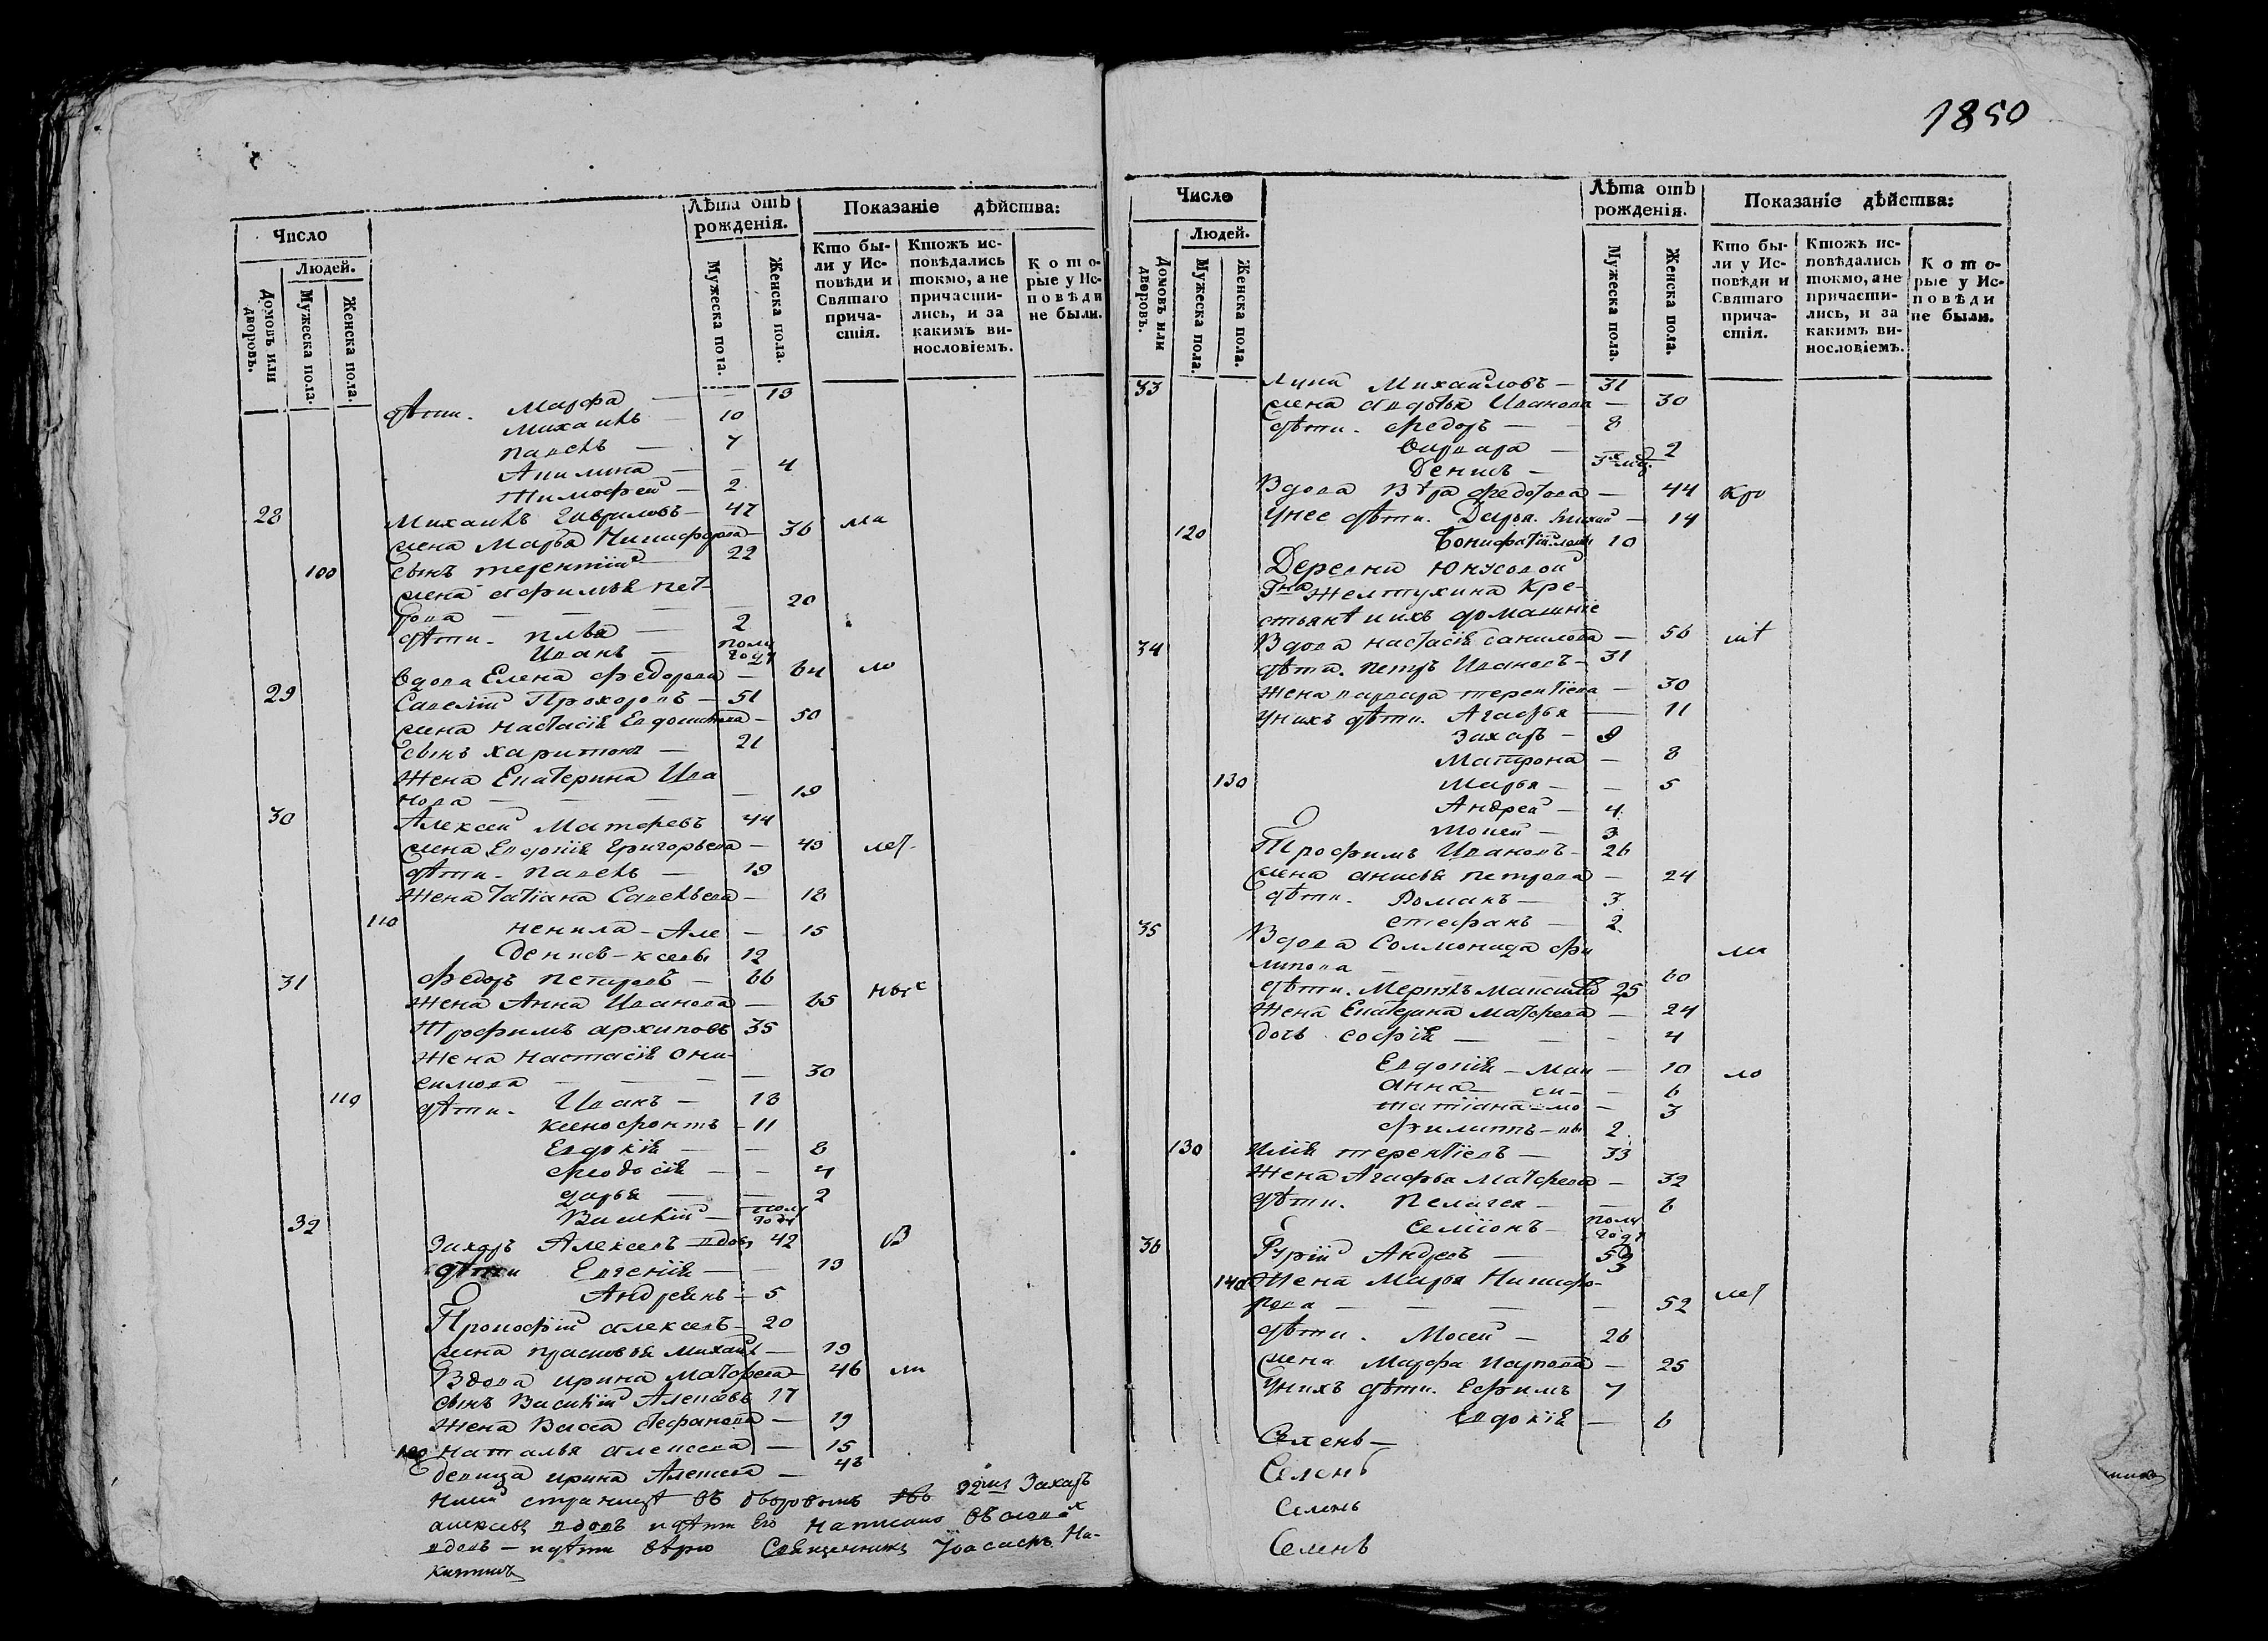 1850
Число
Людей.
Домовъ или дворовъ.
Мужеска пола.
Женска пола.
Лѣта отъ рожденія.
Мужеска пола.
Женска пола.
Показаніе дѣйства:
Кто бы-
ли у Ис-
повѣди и
Святаго
прича-
стія.
Ктожъ ис-
повѣдались
токмо, а не
причасти-
лись, и за
какимъ ви-
нословіемъ.
Кото-
рые у Ис-
повѣди
не были.
дѣти. Марфа — — 13
Михаилъ — 10
Павелъ — 7
Акилина — — 4
Тимофей — 2
28 Михаилъ Гавриловъ — 47
жена Марья Никифорова — 36
100 сынъ Терентій — 22
жена Афимья Пет-
рова — — — — 20
дѣти. Илья — 2
Иванъ — полу года
вдова Елена Федорова — 64
29 Савелій Прохоровъ — 51
жена Настасія Евдокимова — 50
сынъ Харитонъ — 21
Жена Екатерина Ива
нова — — — — 19
30 Алексей Матфевъ 44
жена Евдокія Григорьева — 43
дѣти. Павелъ — 19
Жена Татіана Савельева — 18
110 Ненила — Але — 15
Денисъ — ксевы 12
31 Федоръ Петровъ — 66
Жена Анна Иванова — 65
Трофимъ Архиповъ 35
Жена Настасія Они-
симова — — — — 30
119 дѣти. Иванъ — 13
Ксенофонтъ — 11
Евдокія — — 8
Феодосія — — 4
Дарья — — 2
Василій — полу года
32 Захаръ Алексевъ вдовъ 42
дѣти Евгенія — — 13
Андреянъ — 5
Прокофій Алексевъ — 20
жена Прасковья Михайл — 19
Вдова Ирина Матфева — 46
сынъ Василій Алексевъ 17
Жена Васса Стефанова — 19
120 Наталья Алексева — 15
девица Ирина Алексева — 43
страницѣ въ дворовомъ 32мъ Захаръ
Алексевъ вдовъ и дѣти его написано
вдовъ — и дѣти вѣрю Священникъ Ни-
китинъ
Число
Людей.
Домовъ или дворовъ.
Мужеска пола.
Женска пола.
Лѣта отъ рожденія.
Мужеска пола.
Женска пола.
Показаніе дѣйства:
Кто бы-
ли у Ис-
повѣди и
Святаго
прича-
стія.
Ктожъ ис-
повѣдались
токмо, а не
причасти-
лись, и за
какимъ ви-
нословіемъ.
Кото-
рые у Ис-
повѣди
не были.
33 Лука Михайловъ — 31
жена Авдотья Иванова — 30
дѣти. Федоръ — — 8
Варвара — 2
Денисъ —
Вдова Вѣра Федотова — 44
У нее дѣти. Дарья — 14
120 10
Деревни Юнусовой
Гна Желтухина Кре-
стьянѣ и ихъ домашніе
34 Вдова Настасія Данилова — 56
дѣти. Петръ Ивановъ — 31
Жена Варвара Терентіева — 30
У нихъ дѣти. Агафья — 11
Захаръ — 9
Матрона — 8
130 Марья — — 5
Андрей — 4
Мокей — 3
Трофимъ Ивановъ — 26
жена Анисья Петрова — 24
дѣти. Романъ — 3
Стефанъ — 2
35 Вдова Соломонида Фи
липова — — — — 60
25
Жена Екатерина Матфева — 24
дочь Софія — — — 4
Евдокія — Мак — 10
Анна — си — — 6
Татіана — мо — 3
Филиппъ — вы 2
130 Илія Терентіевъ — 33
Жена Агафья Матфева — 32
дѣти. Пелагея — — 6
Семіонъ — полу года
36 Гурій Андревъ — 53
140 Жена Марья Никифо-
рова — — — — 52
дѣти. Мосей — 26
жена Марфа Исупова — 25
У нихъ дѣти. Ефимъ 7
Евдокія — 6